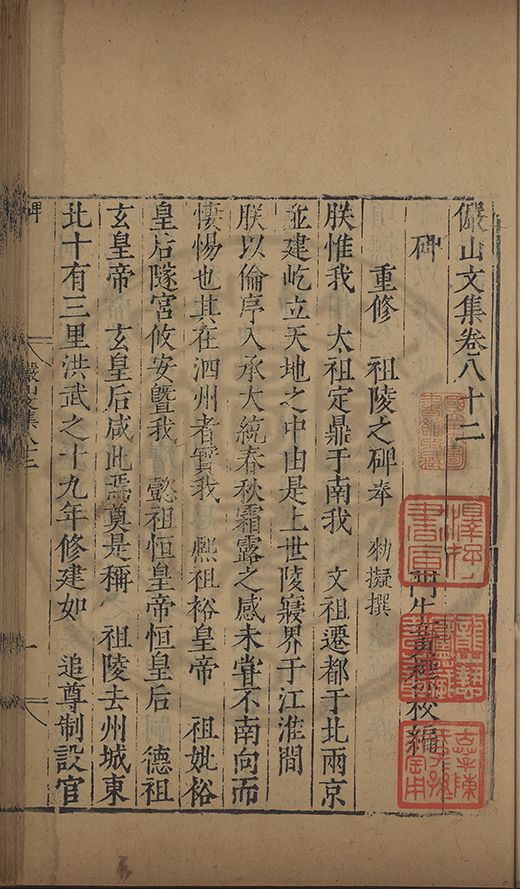 儼山文集卷八十二
門生黃標校編
碑
重修　祖陵之碑奉　勑擬撰
朕惟我　太祖定鼎于南我　文祖遷都于北兩京
並建屹立天地之中由是上世陵寢界于江淮間
朕以倫序入承大統春秋霜露之感未嘗不南向而
悽惕也其在泗州者實我　熙祖裕皇帝　祖妣裕
皇后隧宮攸安曁我　懿祖恒皇帝恒皇后　德祖
玄皇帝　玄皇后咸此焉奠是稱　祖陵去州城東
北十有三里洪武之十九年修建如　追尊制設官